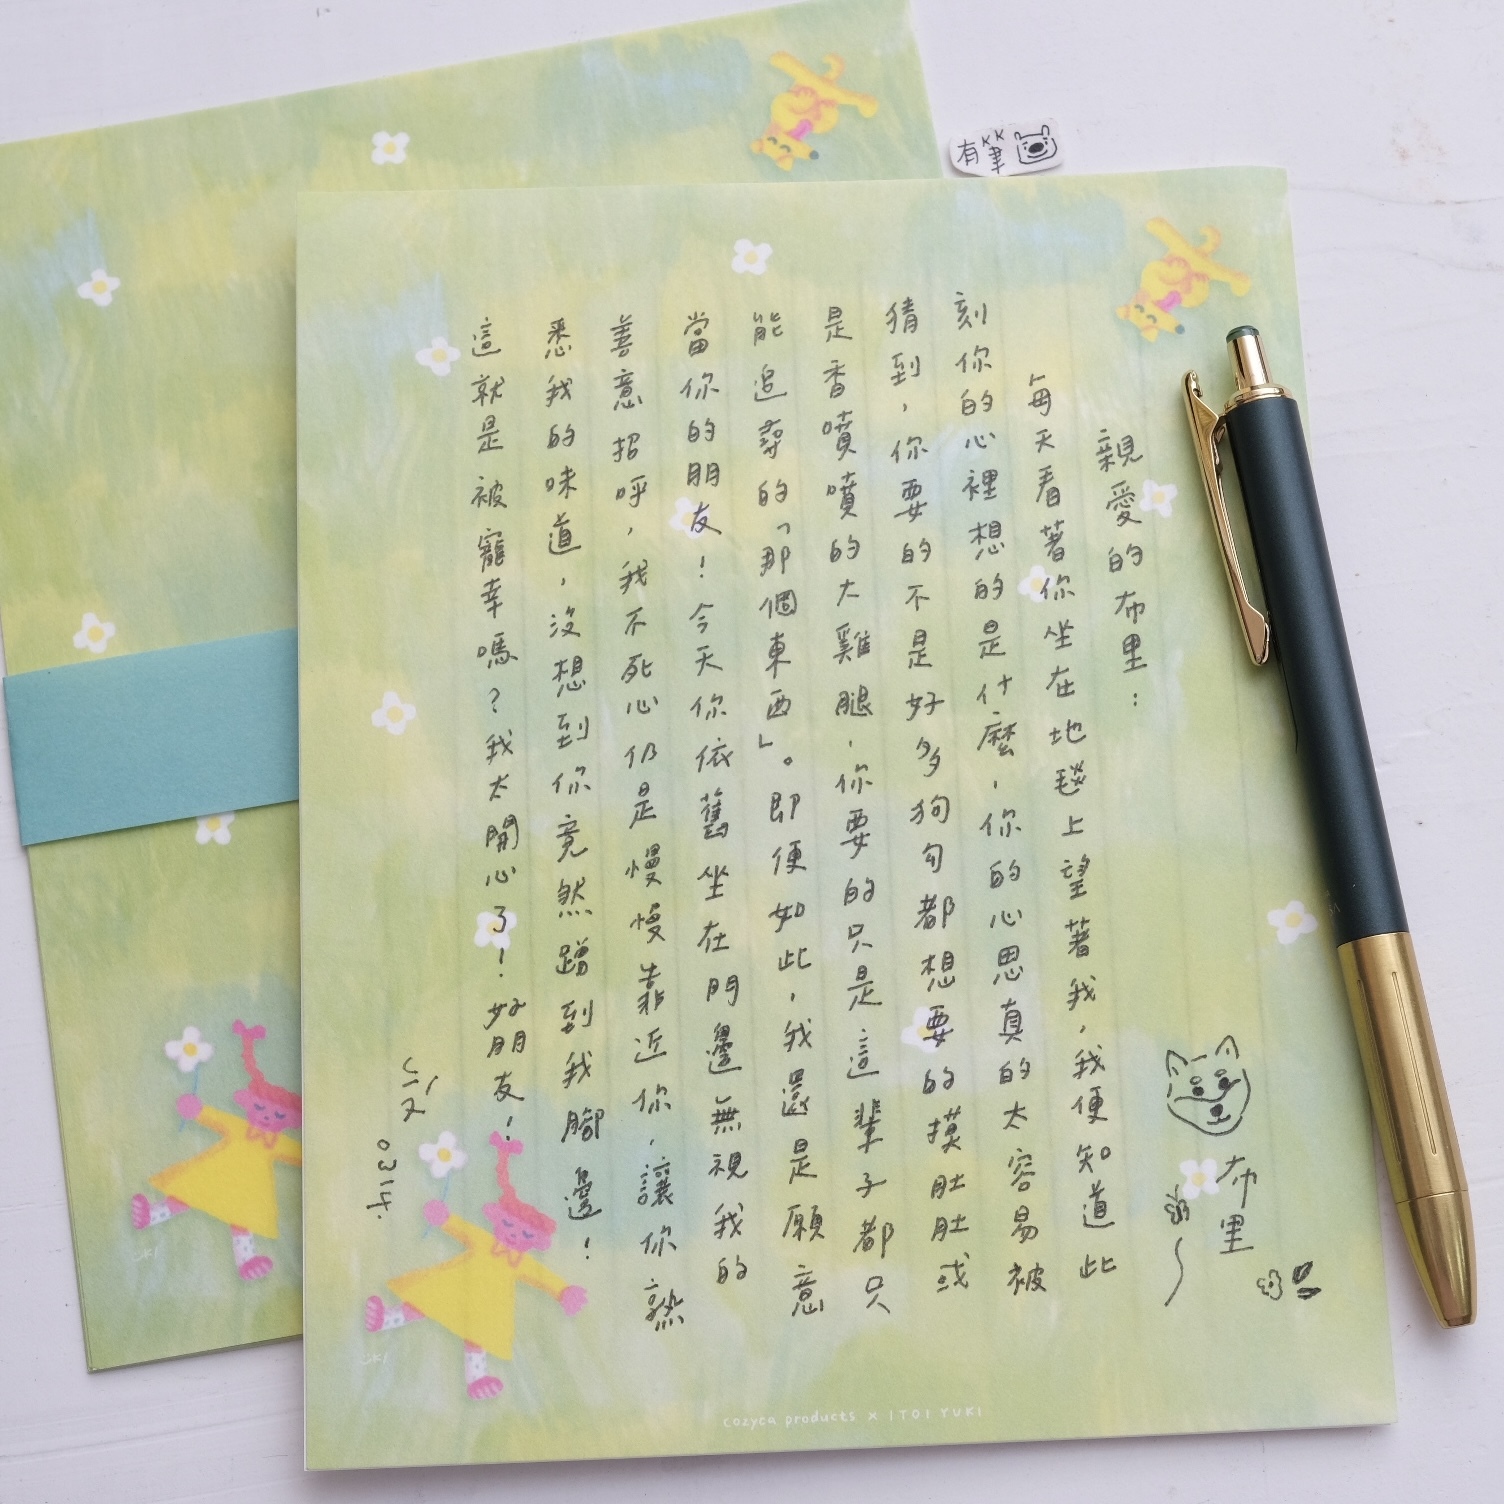 親愛的布里：
每天看著你坐在地毯上望著我，我便知道此
刻你的心裡想的是什麼，你的心思真的太容易被
猜到，你要的不是好多狗勾都想要的摸肚肚或
是香噴噴的大雞腿，你要的只是這輩子都只
能追尋的「那個東西」。即便如此，我還是願意
當你的朋友！今天你依舊坐在門邊無視我的
善意招呼，我不死心仍是慢慢靠近你，讓你熟
悉我的味道，沒想到你竟然蹭到我腳邊！
這就是被寵幸嗎？我太開心了！好朋友！
0314.
布里
有筆
cozyca products x ITOI YUKI